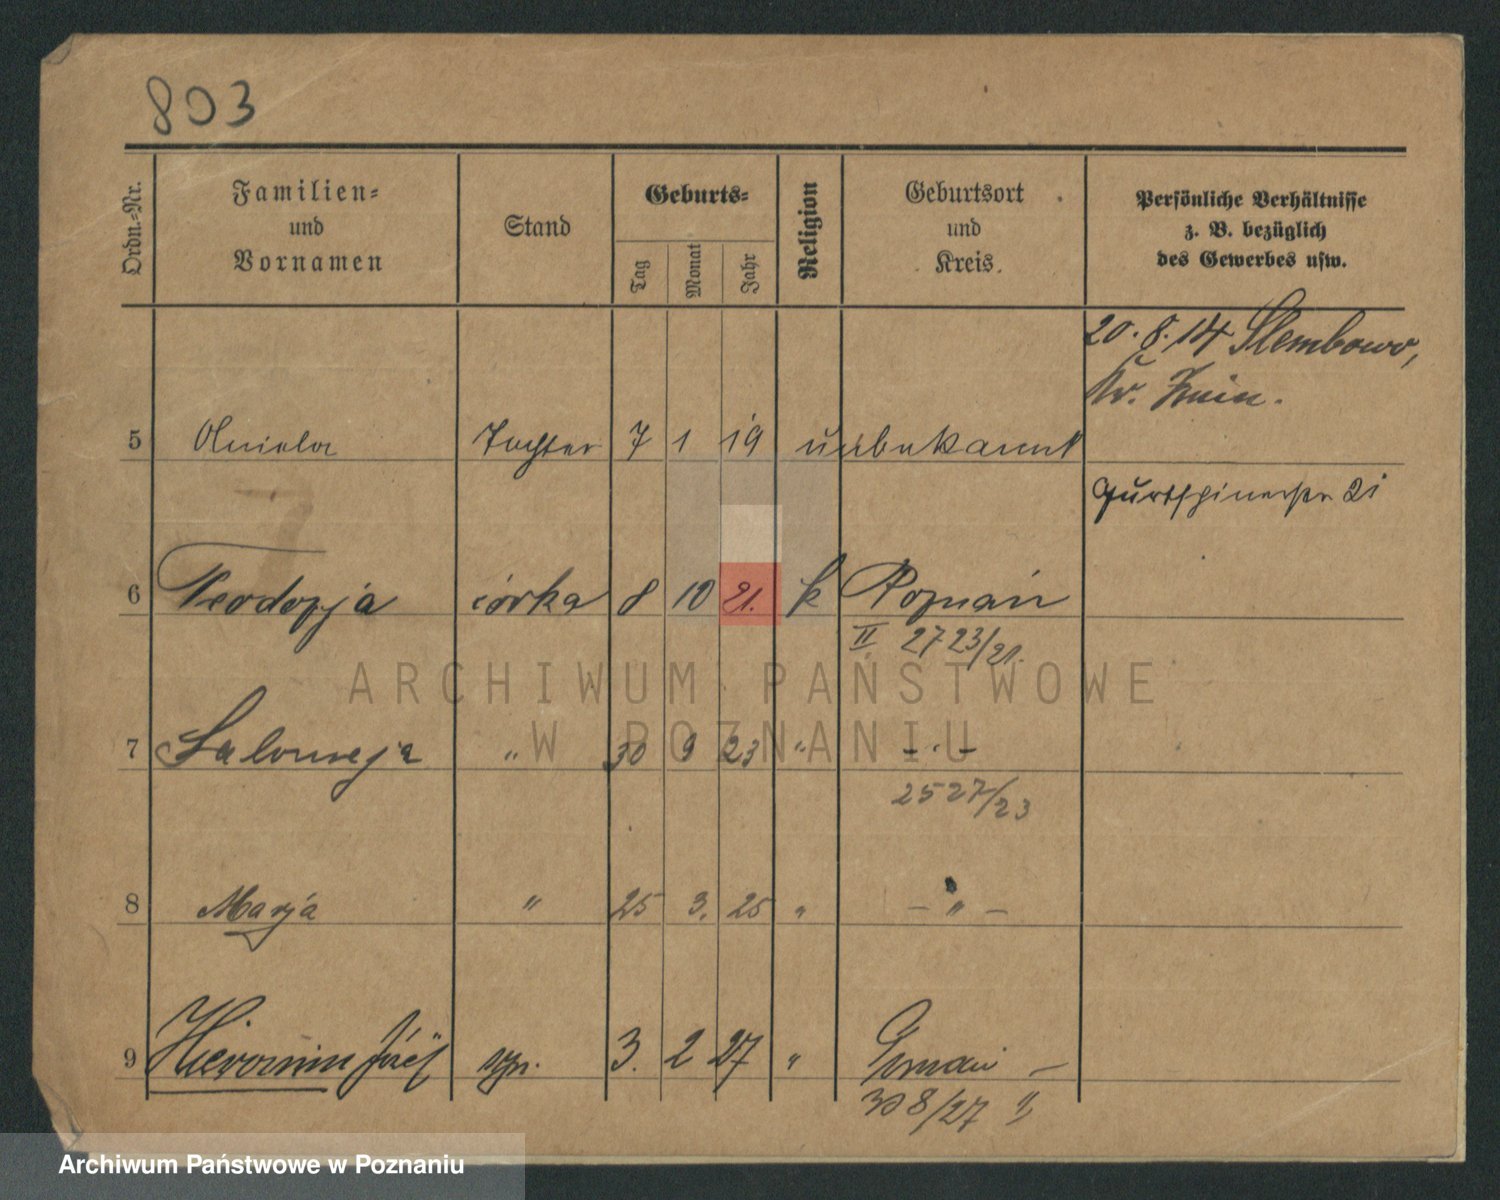 803
Ordn.-Nr.
Familien-
und
Vornamen
Stand
Geburts-
Tag
Monat
Jahr
Religion
Geburtsort
und
Kreis.
Persönliche Verhältnisse
z. B. bezüglich
des Gewerbes usw.
20. 8. 14 Slembowo,
Kr. Znin.
5 Aniela Tochter 7 1 19 unbekannt
21
6 Teodozja córka 8 10 21. k Poznań
II 2723/21.
ARCHIWUM PAŃSTWOWE
W POZNANIU
7 Salomeja " 30 9 23 " - " -
2527/23
8 Marja " 25 3. 25 " - " -
9 Hieronim Józef syn. 3. 2 27 " Poznań -
308/27 II
Archiwum Państwowe w Poznaniu